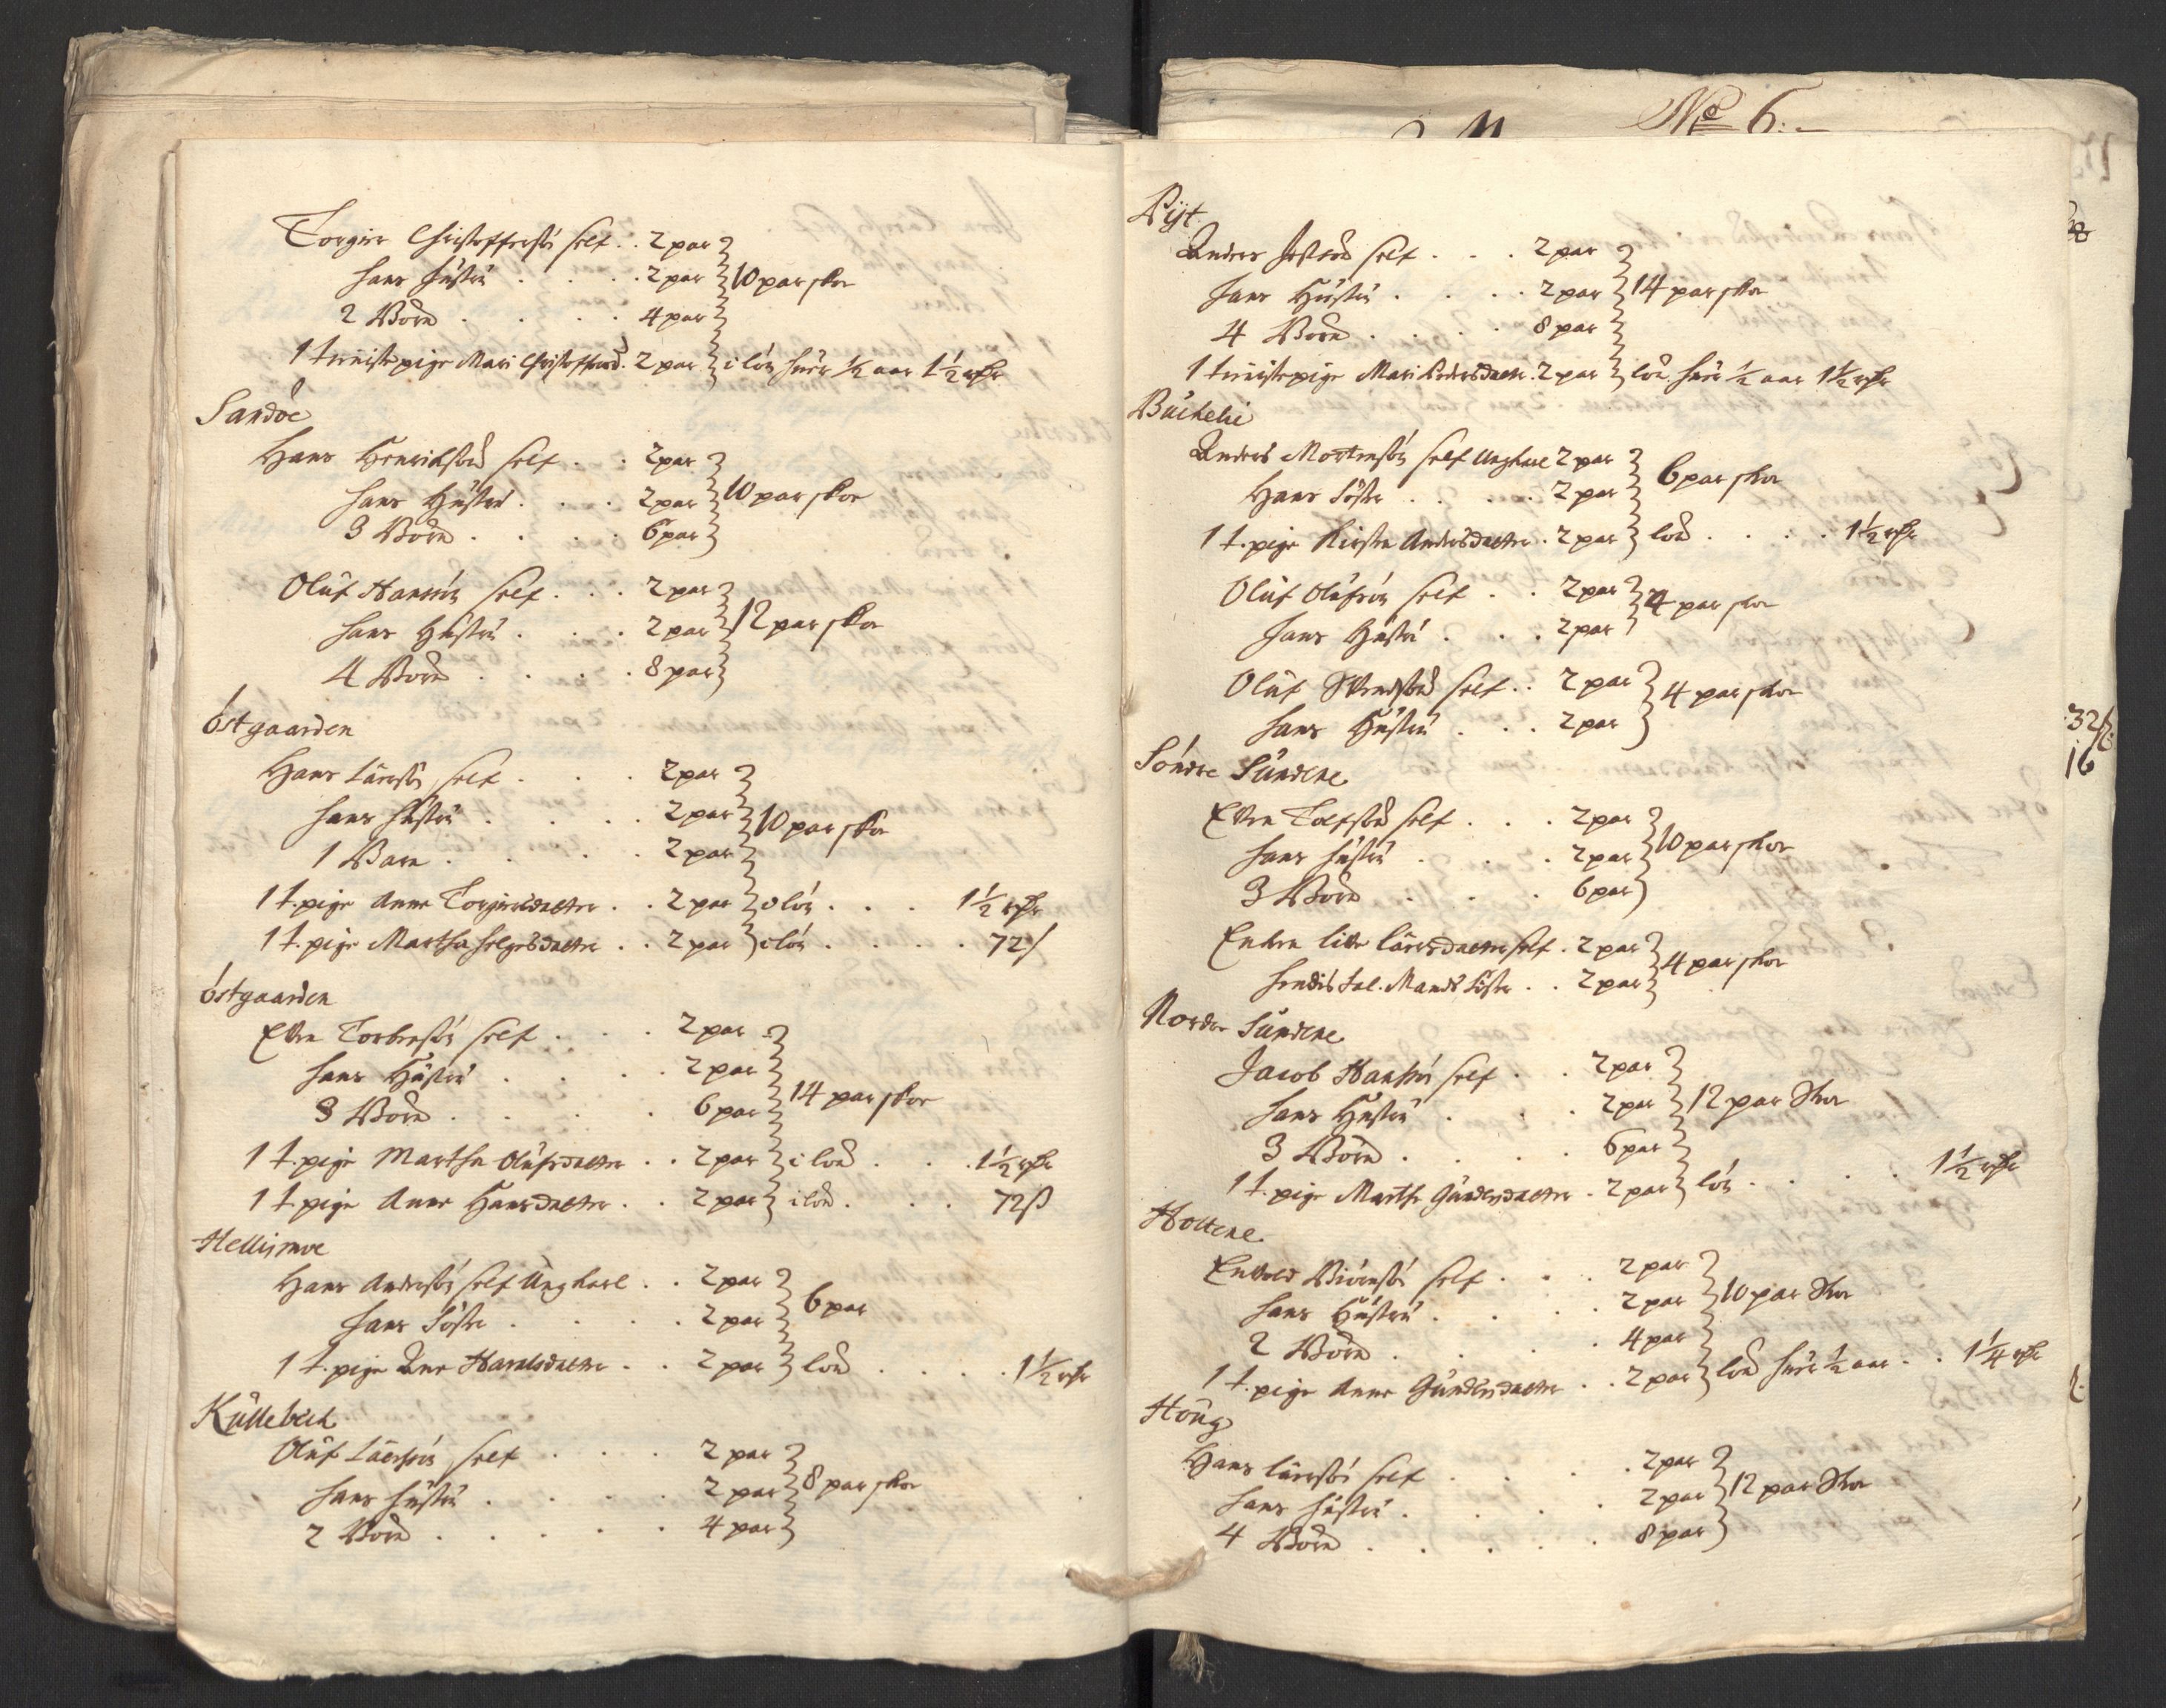 Torgier Christoffersön self . . 2 par
hans hüstrü . . . . 2 par } 10 par skoe
2 Börn . . . . 4 par
1 tieniste pige Mari Christoffersd. 2 par } i lön hver 1/2 aar 1 1/2 rdr
Sandöe
Hans Henrichsön self . . 2 par
hans Hüstrü . . . 2 par } 10 par skoe
3 Börn . . . . 6 par
Olüf Hansön self . . . 2 par
hans Hüstrü . . . 2 par } 12 par skoe
4 Börn . . . . 8 par
Östgaarden
Hans Lärssön self . . . 2 par
hans hüstrü . . . . 2 par } 10 par skoe
1 Barn . . . . 2 par
1 t. pige Anne Torgiersdatter . . 2 par } i lön . . . 1 1/2 rdr
1 t. pige Martha Helgesdatter . . 2 par } i lön . . . . 72 ß
Östgaarden
Elben Torbensön self . . . 2 par
hans Hüstrü . . . . 2 par } 14 par skoe
3 Börn . . . . 6 par
1 t. pige Martha Olüfsdatter . . 2 par } i lön . . . 1 1/2 rdr
1 t. pige Anne Hansdatter . . 2 par } i lön . . . 72 ß
Hellismoe
Hans Andersön self Ungkarl . . 2 par
hans Söster . . . . 2 par } 6 par
1 t. pige Ane Haraldsdatter . . 2 par } lön . . . . 1 1/2 rdr
Küllebech
Olüf Lärssön self . . . 2 par
hans hüstrü . . . . 2 par } 8 par skoe
2 Börn . . . . . 4 par
No 6:
Ryt
Anders self . . . 2 par
hans Hüstrü . . . . 2 par } 14 par skoe
4 Börn . . . . 8 par
1 tieniste pige Mari Andersdatter . 2 par } lön hver 1/2 aar 1 1/2 rdr
Büchelie
Anders Mortensön self Ungkarl 2 par
Hans Söster . . . . 2 par } 6 par skoe
1 t. pige Kirsten Andersdatter . 2 par } lön . . . . 1 1/2 rdr
Olüf Olüfsön self . . 2 par
hans Hüstrü . . . 2 par } 4 par skoe
Olüf Svendsön self . . 2 par
hans Hüstrü . . . 2 par } 4 par skoe
Söndre Sündene
Elben Tolfsön self . . . 2 par
hans hüstrü . . . . 2 par } 10 par skoe
3 Börn . . . . 6 par
Enken Larsdatter self . 2 par
hendis Sal. Mands Söster . . 2 par } 4 par skoe
Nordre Sündene
Jacob Hansön self . . 2 par
hans Hüstrü . . . . 2 par } 12 par Skoe
3 Börn . . . . 6 par
1 t. pige Marthe Gündersdatter . 2 par } lön . . . . 1 1/2 rdr
Holtene
Endvold Biörnsön self . . . 2 par
hans Hüstrü . . . . 2 par } 10 par Skoe
2 Börn . . . . 4 par
1 t. pige Anne Gündersdatter . . 2 par } lön hver 1/2 aar . . 1 1/4 rdr
Höüg
Hans Lärssön self . . . . 2 par
hans hüstrü . . . . 2 par } 12 par Skoe
4 Börn . . . . . 8 par
32 ß
16